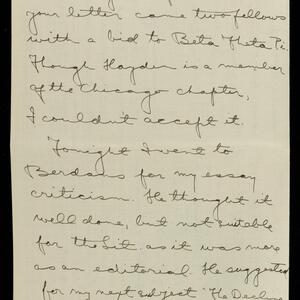 your letter came two fellows
with a bid to Beta Theta Pi.
Though Hayden is a member
of the Chicago chapter,
I couldn't accept it.
Tonight I went to
Berdans for my essay
criticism. He thought it
well done, but not suitable
for the Lit. as it was more
as an editorial. He suggested
for my next subject "The Decline